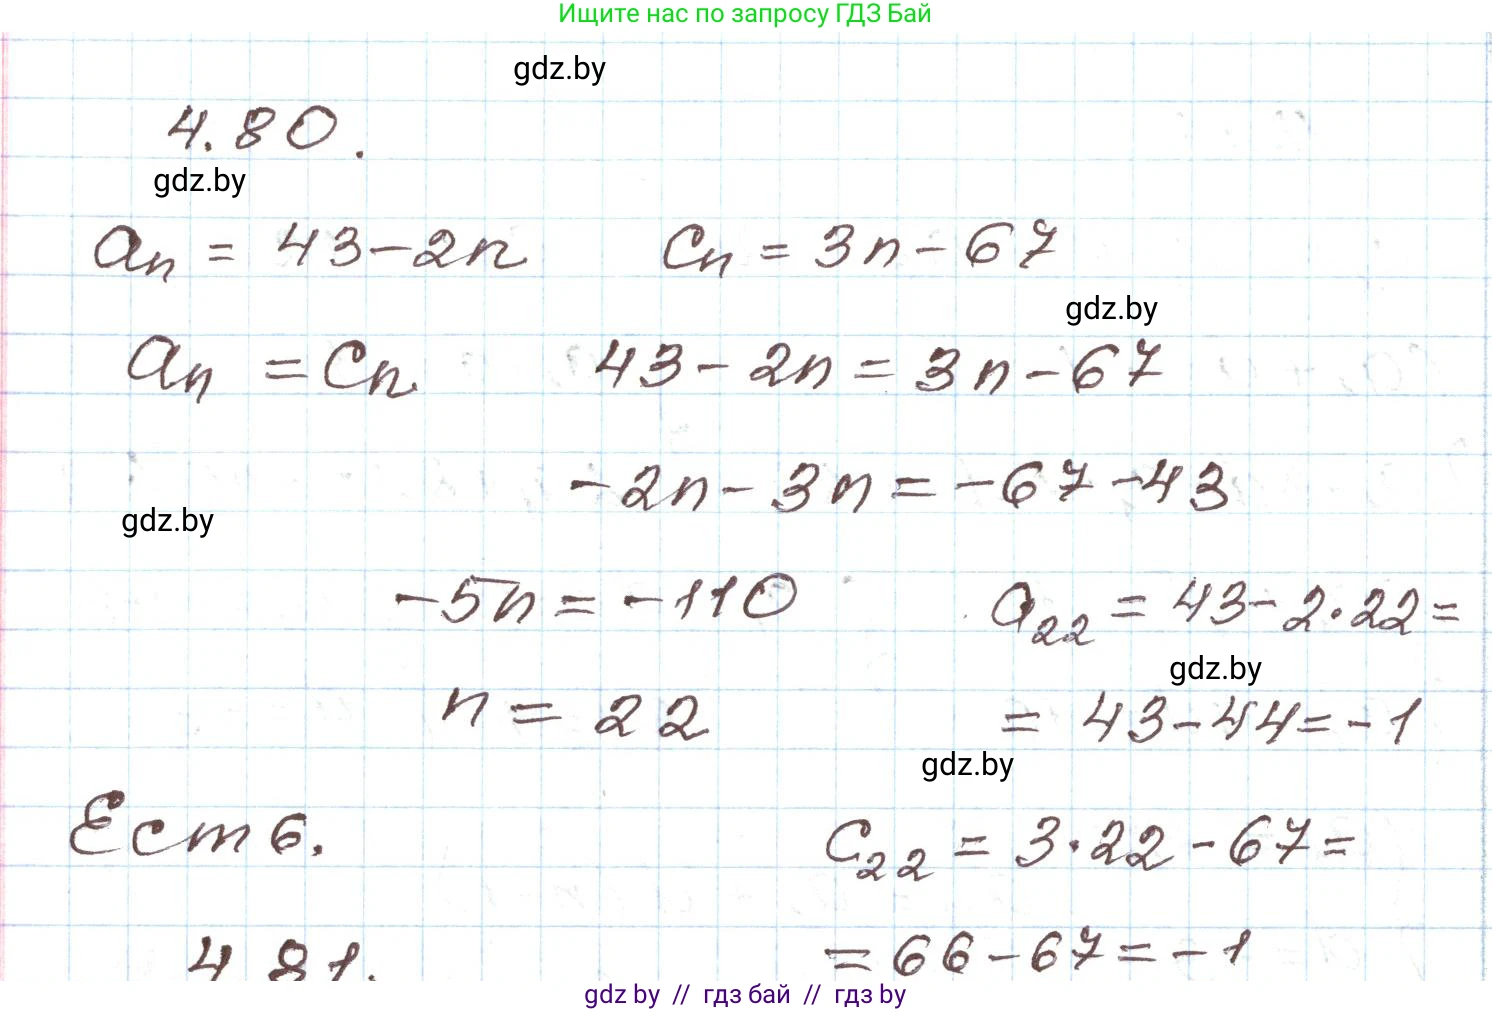 Ищите нас по запросу ГДЗ Бай
gdz.by
4.80.
gdz.by
aₙ = 43-2n cₙ = 3n-67
gdz.by
aₙ = cₙ 43-2n=3n-67
-2n-3n=-67-43
gdz.by
-5n=-110 a₂₂ = 43-2·22=
gdz.by
n=22 = 43-44=-1
gdz.by
Есть. c₂₂ = 3·22-67=
4 81. =66-67=-1
gdz by // гдз бай // гдз by